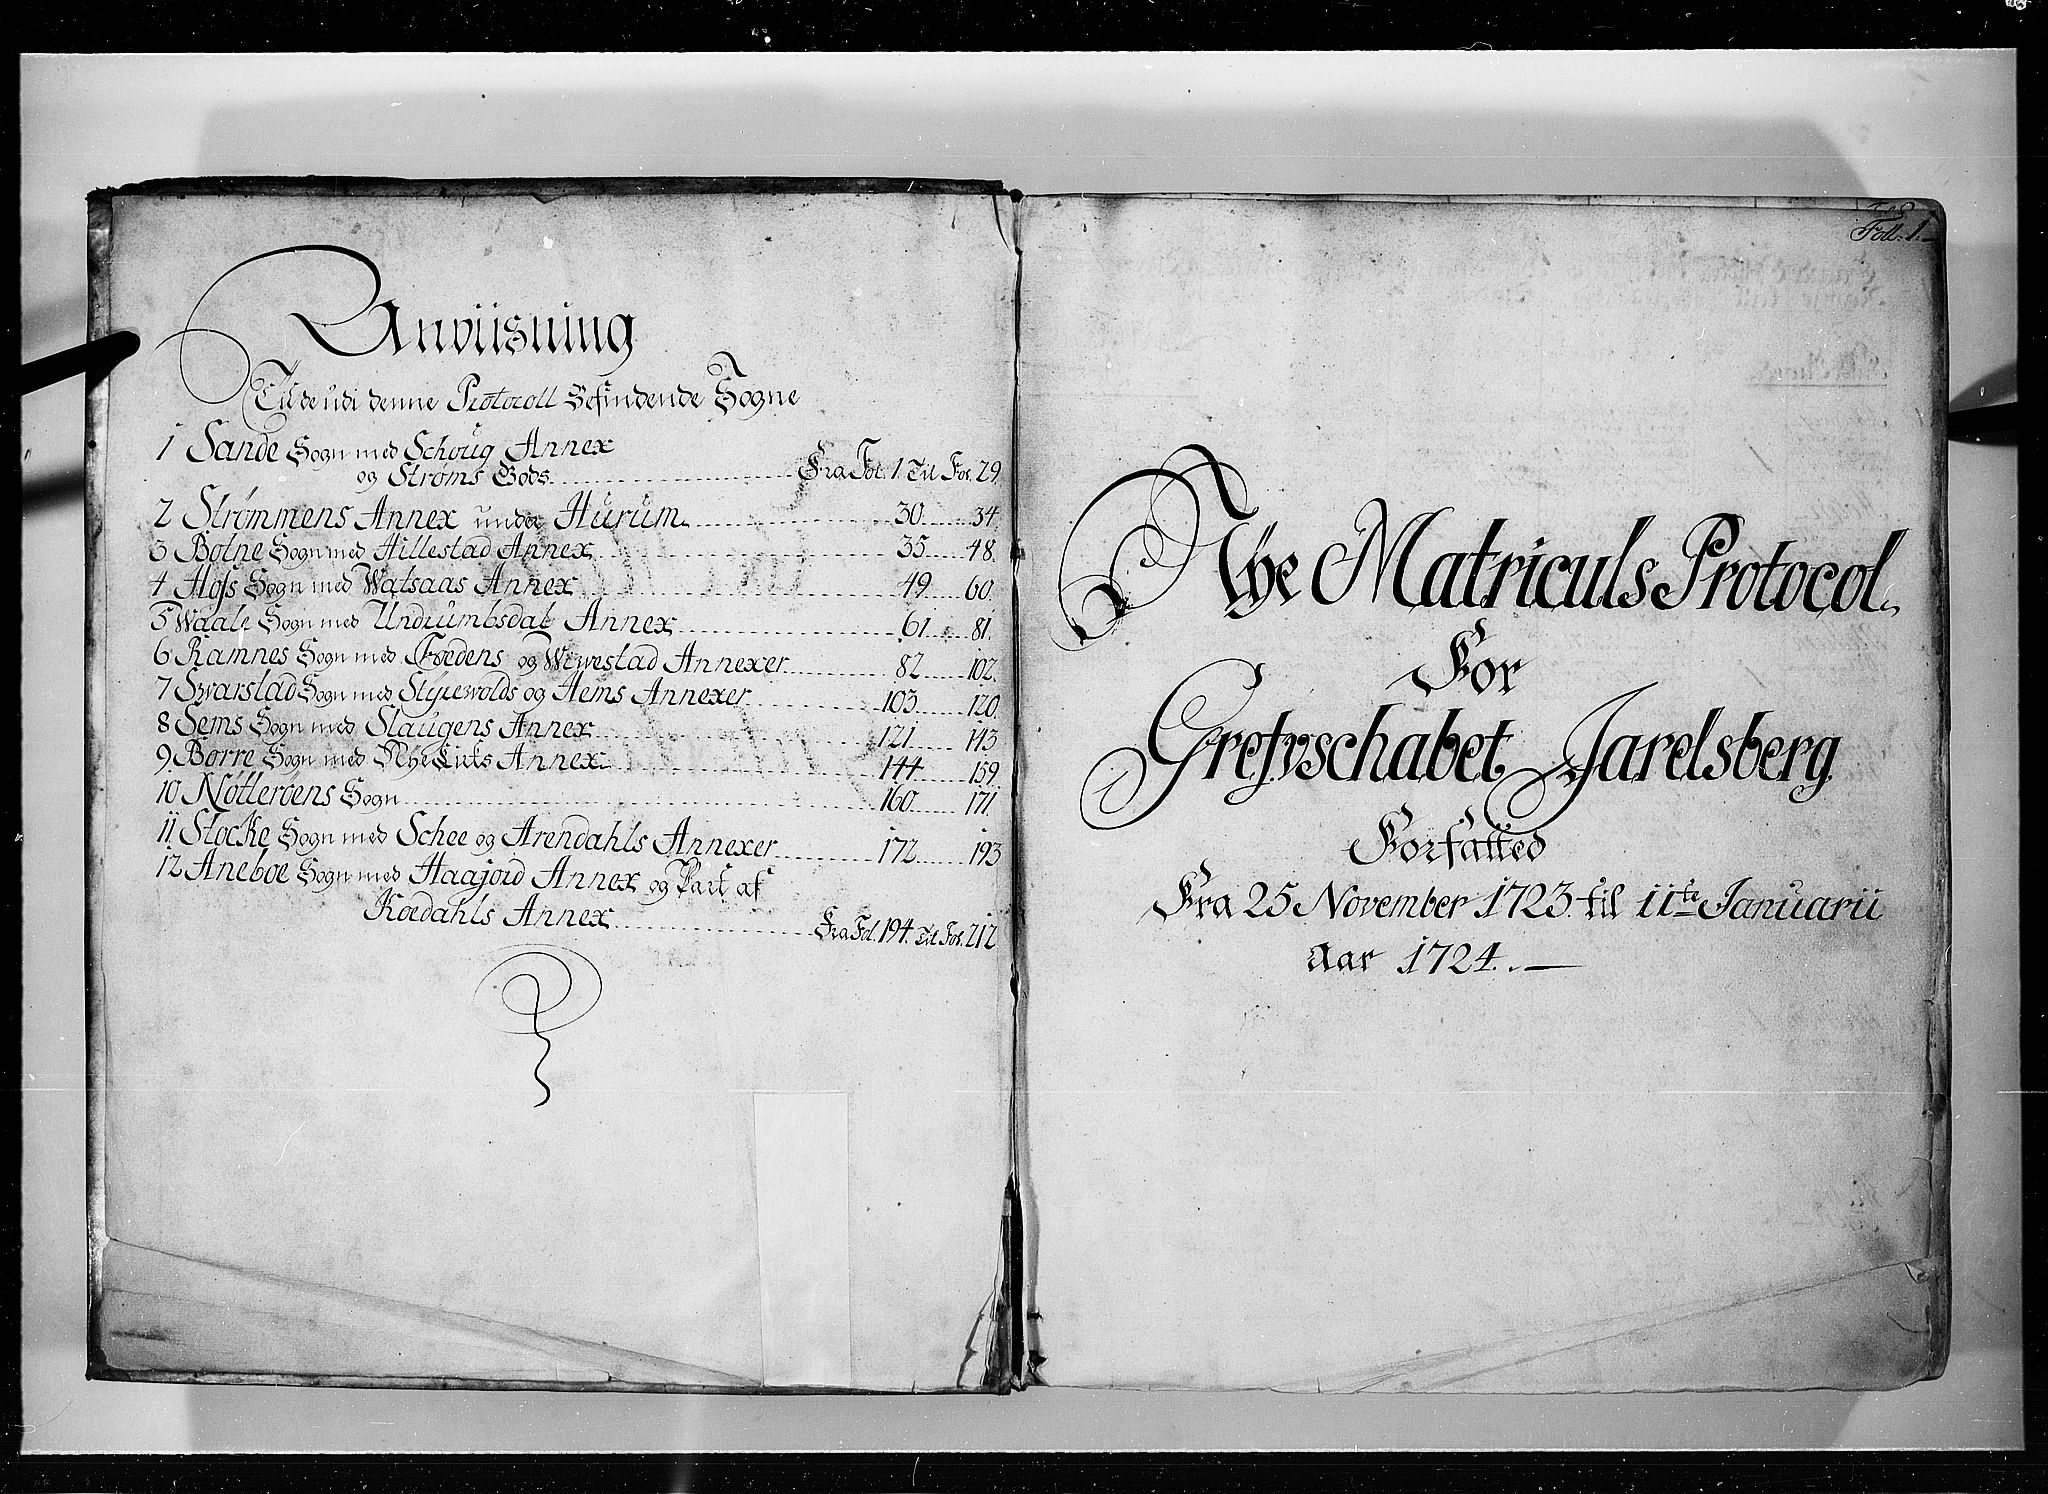 Anviisning
Til de udi denne Protocoll Befindende Sogne
1 Sande Sogn med Schoug Annex
og Strøms Gods Fra Fol. 1. Til Fol. 29
2 Strømmens Annex under Hurum 30 34.
3 Botne Sogn med Hillestad Annex 35 48.
4 Hofs Sogn med Watsaas Annex 49 60.
5 Waale Sogn med Undrumbsdal Annex 61 81.
6 Ramnes Sogn med Foedens og Wivestad Annexer 82 102.
7 Svarstad Sogn med Styrewolds og Hems Annexer 103 120.
8 Sems Sogn med Slaugens Annex 121 143
9 Borre Sogn med Nye Annex 144 159
10 Nøtterøens Sogn 160 171.
11 Stocke Sogn med Schee og Arendahls Annexer 172 193
12 Aneboe Sogn med Haajord Annex og Part af
Koedahls Annex Fra Fol. 194. Til Fol. 212
Foll: 1.
Nye Matriculs Protocol.
For
Grefvschabet Jarelsberg
Forfatted
Fra 25 November 1723. til 11te Januarii
Aar 1724.